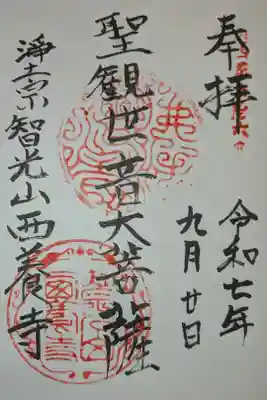 奉拝
令和七年
九月廿日
聖観世音大菩薩
浄土宗智光山西養寺